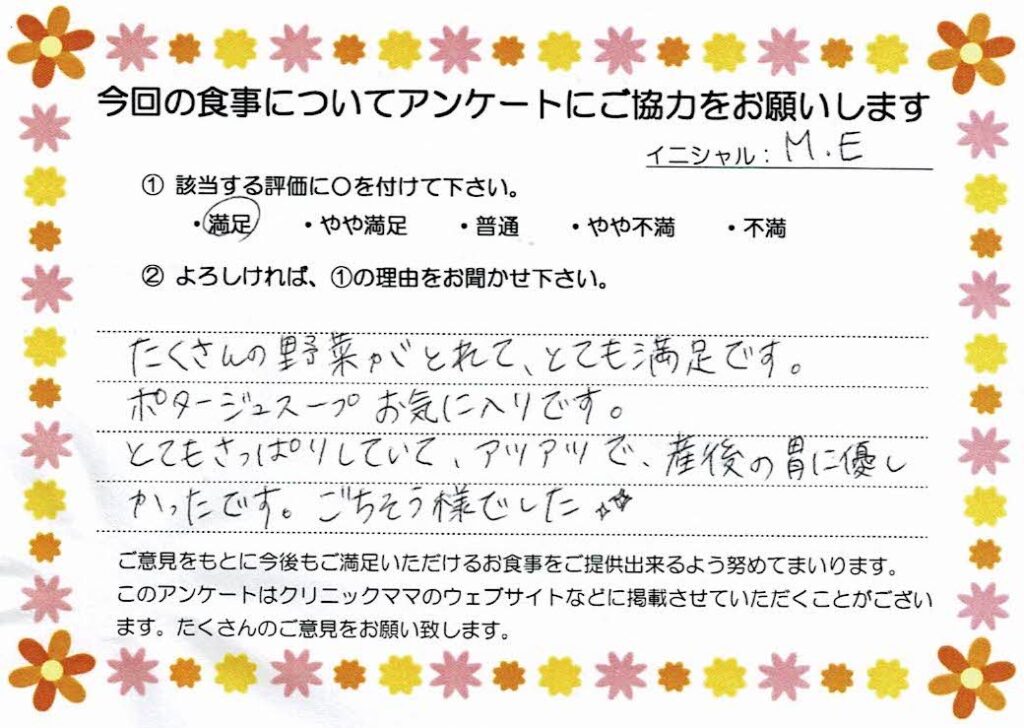 今回の食事についてアンケートにご協力をお願いします
イニシャル：M.E
① 該当する評価に〇を付けて下さい。
・満足 ・やや満足 ・普通 ・やや不満 ・不満
② よろしければ、①の理由をお聞かせ下さい。
たくさんの野菜がとれて、とても満足です。
ポタージュスープお気に入りです。
とてもさっぱりしていて、アツアツで、産後の胃に優し
かったです。ごちそう様でした
ご意見をもとに今後もご満足いただけるお食事をご提供出来るよう努めてまいります。
このアンケートはクリニックママのウェブサイトなどに掲載させていただくことがござい
ます。たくさんのご意見をお願い致します。